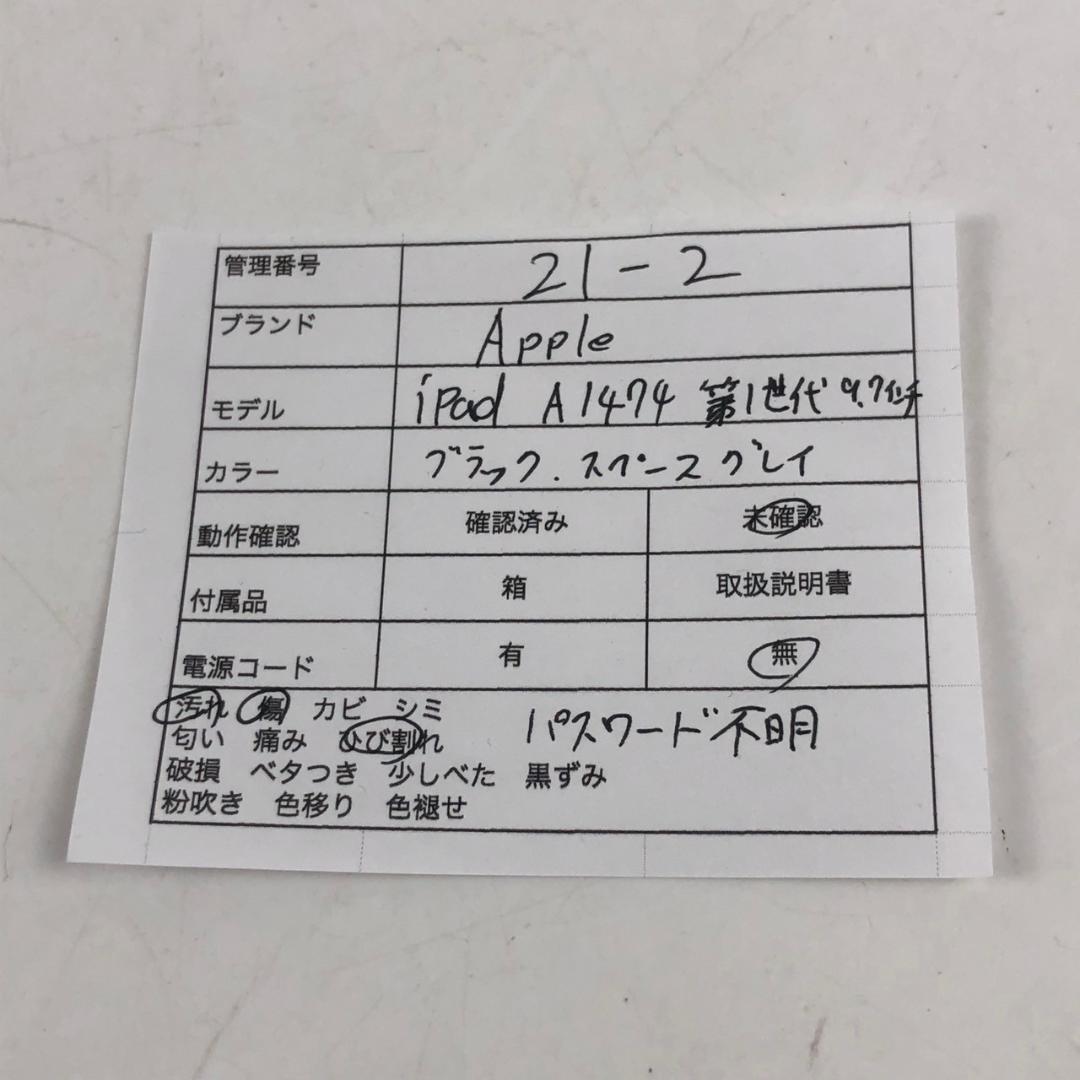 管理番号 21-2
ブランド Apple
モデル iPad A1474 第1世代 9.7インチ
カラー ブラック.スペースグレイ
動作確認 確認済み 未確認
付属品 箱 取扱説明書
電源コード 有 無
汚れ 傷 カビ シミ
匂い 痛み ひび割れ パスワード不明
破損 ベタつき 少しべた 黒ずみ
粉吹き 色移り 色褪せ